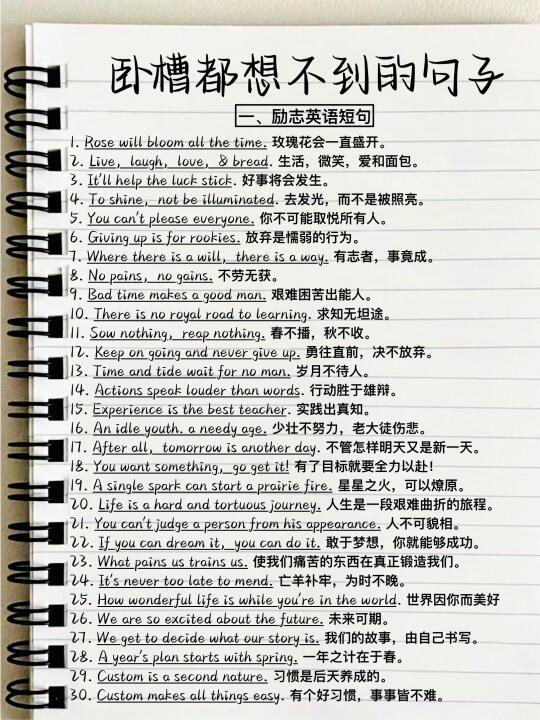 卧槽都想不到的句子
一、励志英语短句
1. Rose will bloom all the time. 玫瑰花会一直盛开。
2. Live, laugh, love, & bread. 生活，微笑，爱和面包。
3. It'll help the luck stick. 好事将会发生。
4. To shine, not be illuminated. 去发光，而不是被照亮。
5. You can't please everyone. 你不可能取悦所有人。
6. Giving up is for rookies. 放弃是懦弱的行为。
7. Where there is a will, there is a way. 有志者，事竟成。
8. No pains, no gains. 不劳无获。
9. Bad time makes a good man. 艰难困苦出能人。
10. There is no royal road to learning. 求知无坦途。
11. Sow nothing, reap nothing. 春不播，秋不收。
12. Keep on going and never give up. 勇往直前，决不放弃。
13. Time and tide wait for no man. 岁月不待人。
14. Actions speak louder than words. 行动胜于雄辩。
15. Experience is the best teacher. 实践出真知。
16. An idle youth. a needy age. 少壮不努力，老大徒伤悲。
17. After all, tomorrow is another day. 不管怎样明天又是新一天。
18. You want something, go get it! 有了目标就要全力以赴！
19. A single spark can start a prairie fire. 星星之火，可以燎原。
20. Life is a hard and tortuous journey. 人生是一段艰难曲折的旅程。
21. You can't judge a person from his appearance. 人不可貌相。
22. If you can dream it, you can do it. 敢于梦想，你就能够成功。
23. What pains us trains us. 使我们痛苦的东西在真正锻造我们。
24. It's never too late to mend. 亡羊补牢，为时不晚。
25. How wonderful life is while you're in the world. 世界因你而美好
26. We are so excited about the future. 未来可期。
27. We get to decide what our story is. 我们的故事，由自己书写。
28. A year's plan starts with spring. 一年之计在于春。
29. Custom is a second nature. 习惯是后天养成的。
30. Custom makes all things easy. 有个好习惯，事事皆不难。